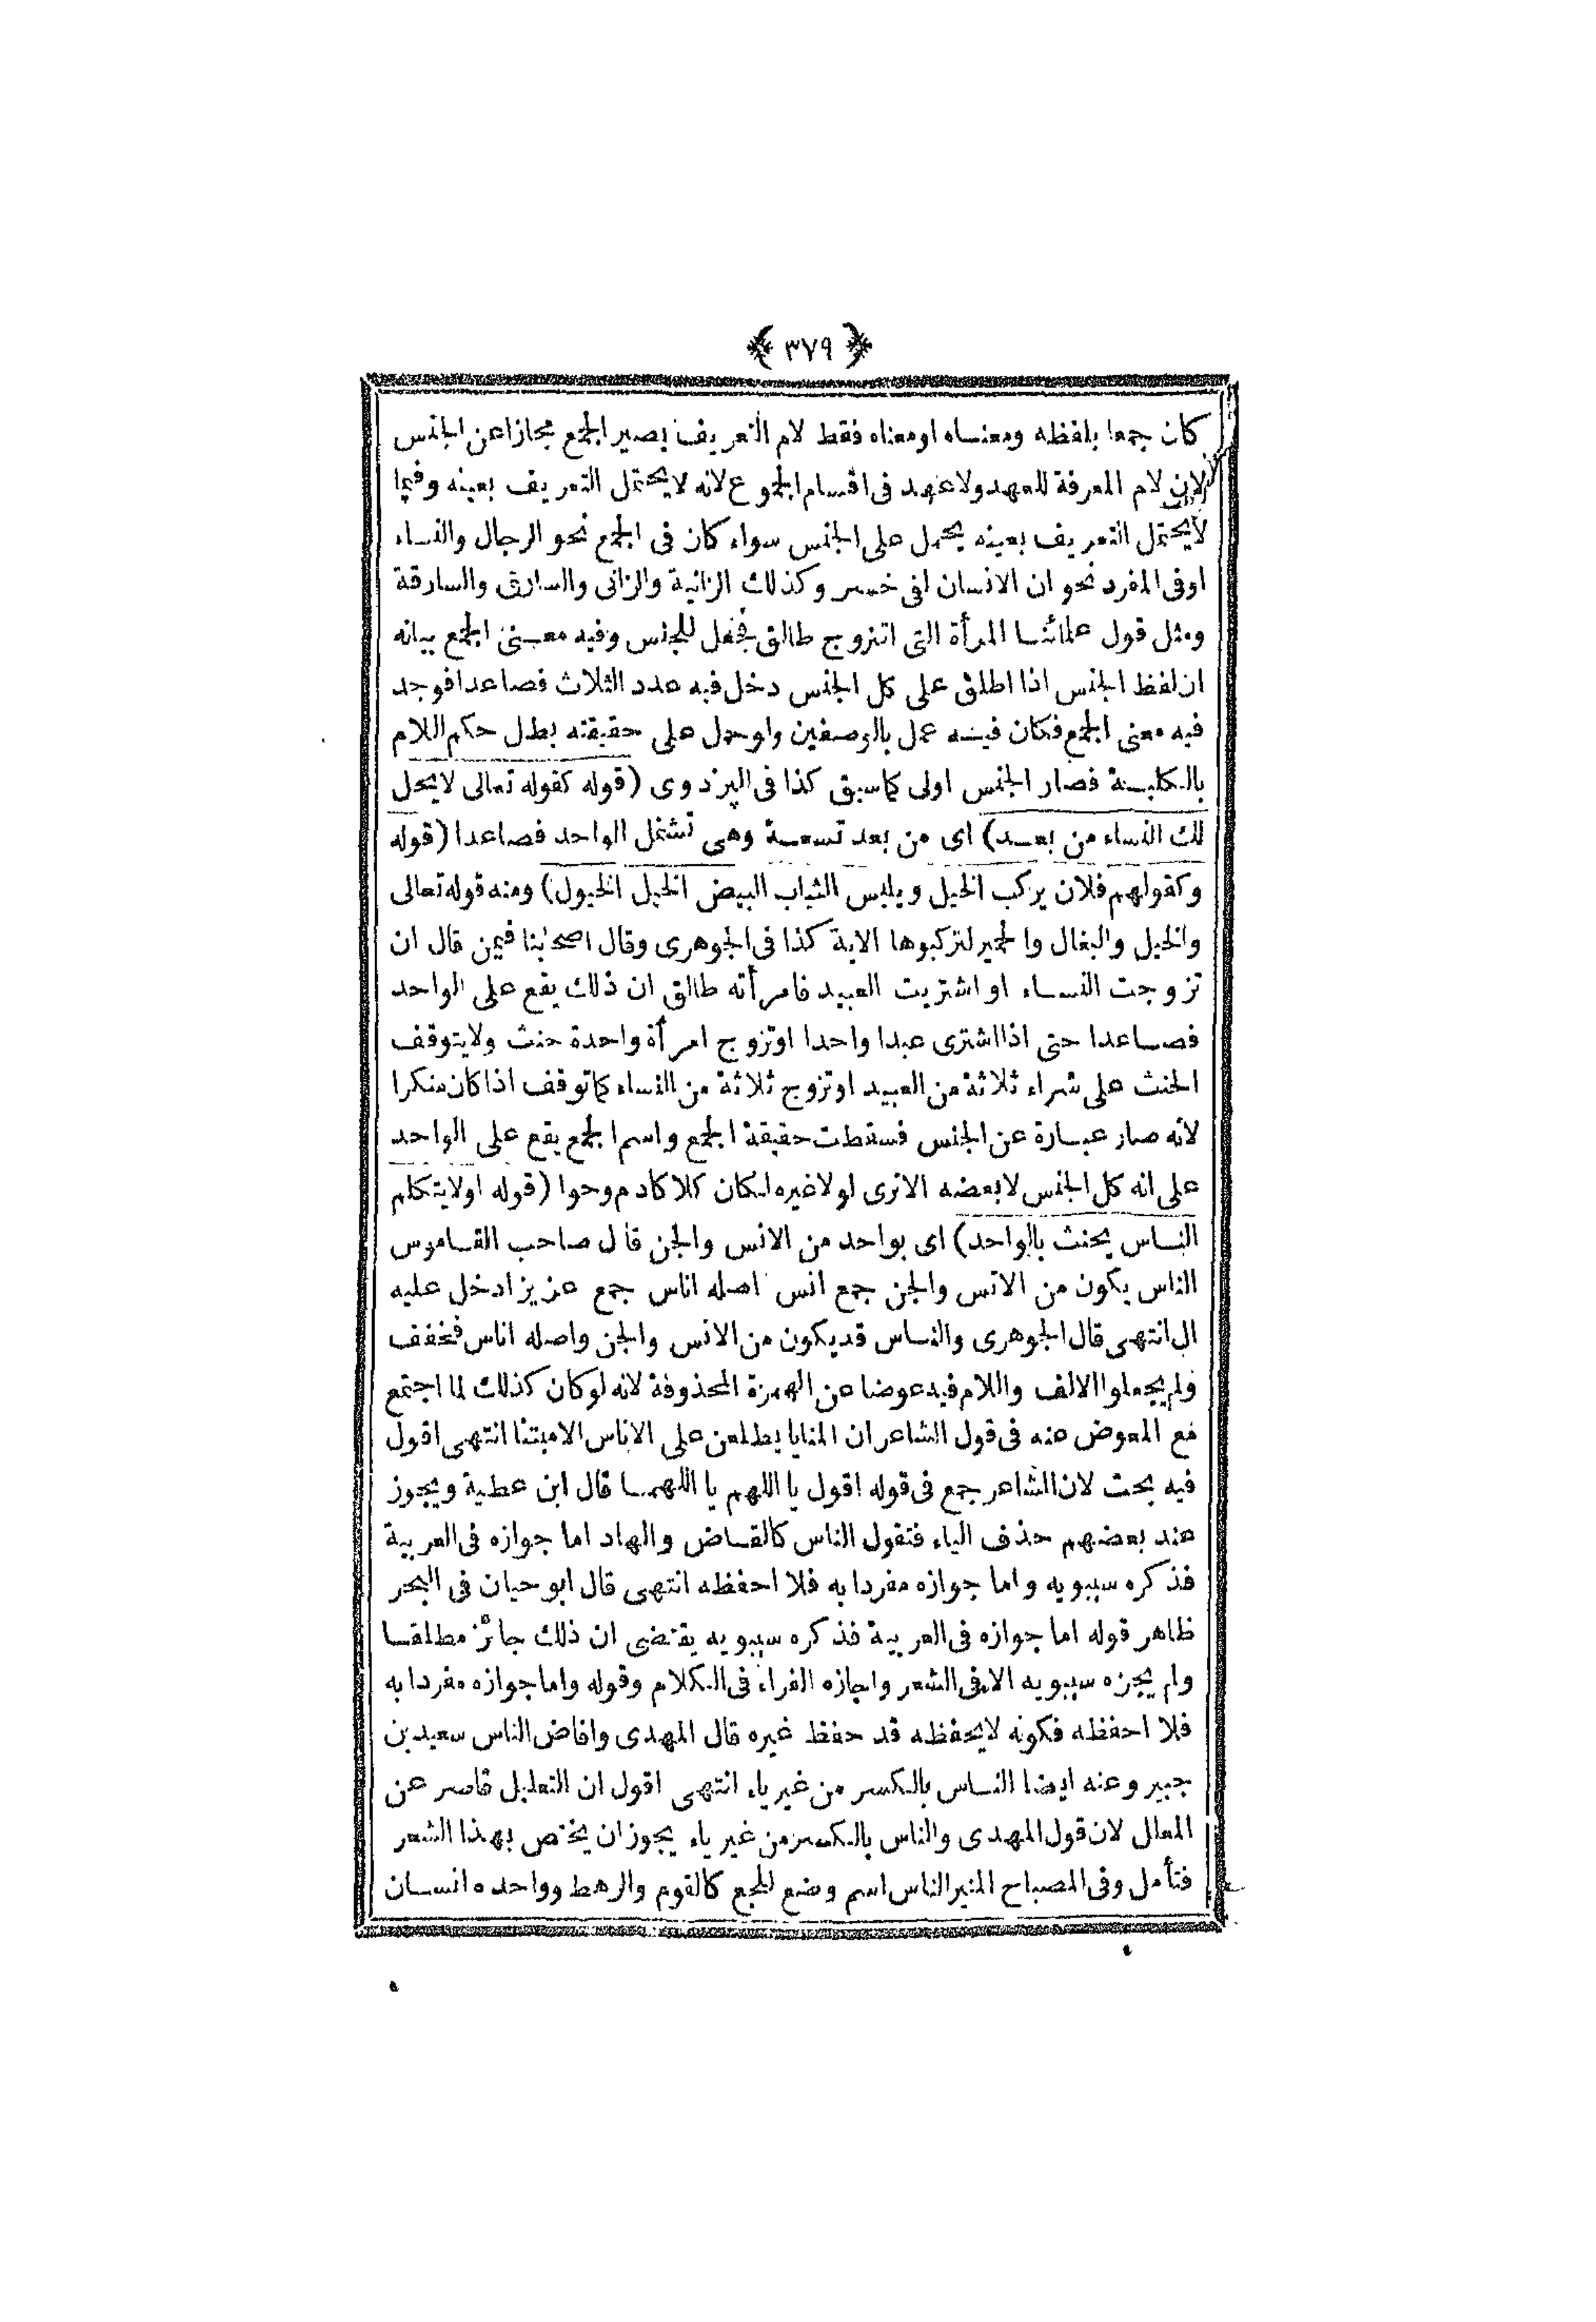 ﴿ ٣٧٩ ﴾
كان جمعا بلفظه ومعناه اومعناه فقط لام التعريف يصير الجمع مجازا عن الجنس
لان لام المعرفة للعهد ولا عهد فى اقسام الجموع لانه لا يحتمل التعريف بعينه وفيما
لا يحتمل التعريف بعينه يحمل على الجنس سواء كان فى الجمع نحو الرجال والنساء
اوفى المفرد نحو ان الانسان لفى خسر وكذلك الزانية والزانى والسارق والسارقة
ومثل قول علمائنا المرأة التى اتزوج طالق فجعل للجنس وفيه معنى الجمع بيانه
ان لفظ الجنس اذا اطلق على كل الجنس دخل فيه عدد الثلاث فصاعدا فوجد
فيه معنى الجمع فكان فيه عمل بالوصفين ولو حمل على حقيقته بطل حكم اللام
بالكلية فصار الجنس اولى كما سبق كذا فى البزدوى (قوله كقوله تعالى لا يحل
لك النساء من بعد) اى من بعد تسعة وهى تشتمل الواحد فصاعدا (قوله
وكقولهم فلان يركب الخيل ويلبس الثياب البيض الخيل الخيول) ومنه قوله تعالى
والخيل والبغال والحمير لتركبوها الاية كذا فى الجوهرى وقال اصحابنا فيمن قال ان
تزوجت النساء او اشتريت العبيد فامرأته طالق ان ذلك يقع على الواحد
فصاعدا حتى اذا اشترى عبدا واحدا اوتزوج امرأة واحدة حنث ولا يتوقف
الحنث على شراء ثلاثة من العبيد اوتزوج ثلاثة من النساء كما توقف اذا كان منكرا
لانه صار عبارة عن الجنس فسقطت حقيقة الجمع واسم الجمع يقع على الواحد
على انه كل الجنس لا بعضه الاترى لولا غيره لكان كلا كادم وحوا (قوله اولا يتكلم
الناس يحنث بالواحد) اى بواحد من الانس والجن قال صاحب القاموس
الناس يكون من الانس والجن جمع انس اصله اناس جمع عزيز ادخل عليه
ال انتهى قال الجوهرى والناس قد يكون من الانس والجن واصله اناس فخفف
ولم يجعلوا الالف واللام فيه عوضا عن الهمزة المحذوفة لانه لو كان كذلك لما اجتمع
مع المعوض عنه فى قول الشاعر ان المنايا يطلعن على الاناس الامنينا انتهى اقول
فيه بحث لان الشاعر جمع فى قوله اقول يا اللهم يا اللهما قال ابن عطية ويجوز
عند بعضهم حذف الياء فتقول الناس كالقاض والهاد اما جوازه فى العربية
فذكره سيبويه واما جوازه مفردا به فلا احفظه انتهى قال ابو حيان فى البحر
ظاهر قوله اما جوازه فى العربية فذكره سيبويه يقتضى ان ذلك جائز مطلقا
ولم يجزه سيبويه الا فى الشعر واجازه الفراء فى الكلام وقوله واما جوازه مفردا به
فلا احفظه فكونه لا يحفظه قد حفظ غيره قال المهدى وافاض الناس سعيد بن
جبير وعنه ايضا الناس بالكسر من غير ياء انتهى اقول ان التعليل قاصر عن
المعال لان قول المهدى والناس بالكسر من غير ياء يجوز ان يختص بهذا الشعر
فتأمل وفى المصباح المنير الناس اسم وضع للجمع كالقوم والرهط وواحده انسان